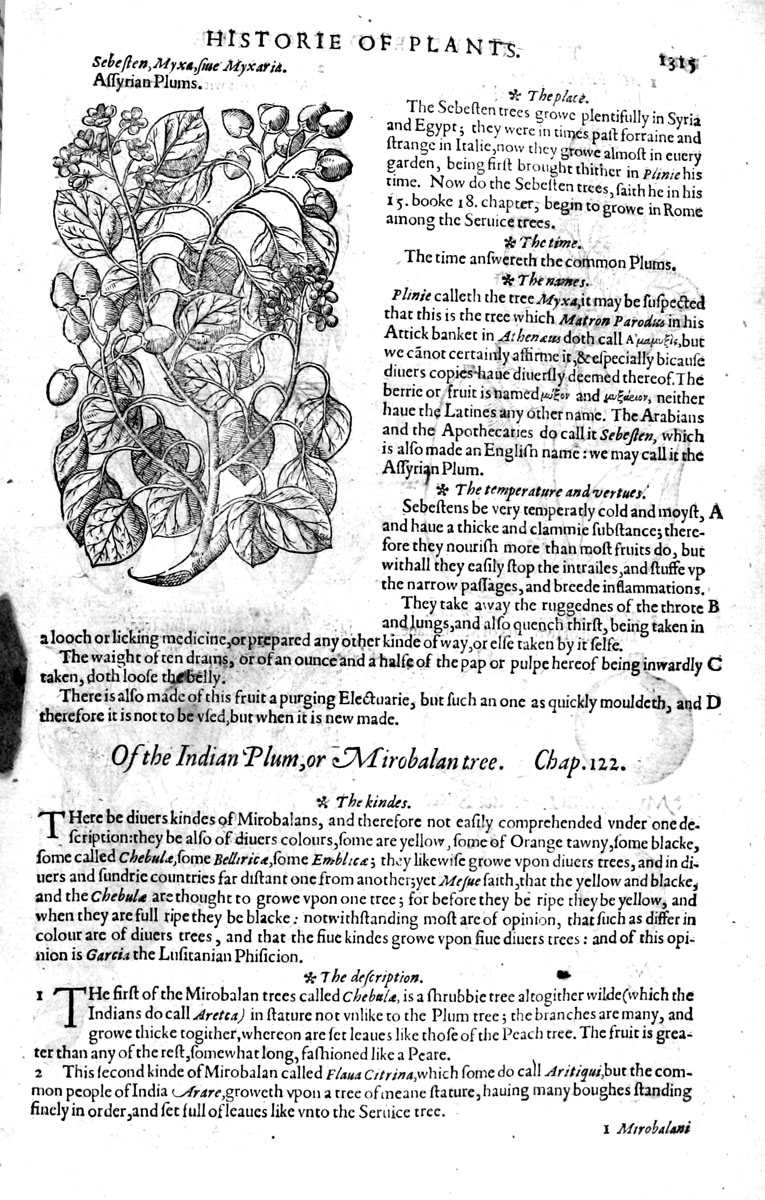 HISTORIE OF PLANTS.
1315
Sebeſten, Myxa, ſiue Myxaria.
Aſſyrian Plums.
✻ The place.
The Sebeſten trees growe plentifully in Syria
and Egypt; they were in times paſt forraine and
ſtrange in Italie, now they growe almoſt in euery
garden, being firſt brought thither in Plinie his
time. Now do the Sebeſten trees, ſaith he in his
15. booke 18. chapter, begin to growe in Rome
among the Seruice trees.
✻ The time.
The time anſwereth the common Plums.
✻ The names.
Plinie calleth the tree Myxa, it may be ſuſpected
that this is the tree which Matron Parodus in his
Attick banket in Athenæus doth call Α᾽μαμυξὶς, but
we cãnot certainly affirme it, & eſpecially bicauſe
diuers copies haue diuerſly deemed thereof. The
berrie or fruit is named μύξον and μυξάειον, neither
haue the Latines any other name. The Arabians
and the Apothecaries do call it Sebeſten, which
is alſo made an Engliſh name: we may call it the
Aſſyrian Plum.
✻ The temperature and vertues.
Sebeſtens be very temperatly cold and moyſt, A
and haue a thicke and clammie ſubſtance; there-
fore they nouriſh more than moſt fruits do, but
withall they eaſily ſtop the intrailes, and ſtuffe vp
the narrow paſſages, and breede inflammations.
They take away the ruggednes of the throte B
and lungs, and alſo quench thirſt, being taken in
a looch or licking medicine, or prepared any other kinde of way, or elſe taken by it ſelfe.
The waight of ten drams, or of an ounce and a halfe of the pap or pulpe hereof being inwardly C
taken, doth looſe the belly.
There is alſo made of this fruit a purging Electuarie, but ſuch an one as quickly mouldeth, and D
therefore it is not to be vſed, but when it is new made.
Of the Indian Plum, or Mirobalan tree. Chap. 122.
✻ The kindes.
THere be diuers kindes of Mirobalans, and therefore not eaſily comprehended vnder one de-
ſcription: they be alſo of diuers colours, ſome are yellow, ſome of Orange tawny, ſome blacke,
ſome called Chebulæ, ſome Bellirica, ſome Emblicæ; they likewiſe growe vpon diuers trees, and in di-
uers and ſundrie countries far diſtant one from another; yet Meſue ſaith, that the yellow and blacke,
and the Chebulæ are thought to growe vpon one tree; for before they be ripe they be yellow, and
when they are full ripe they be blacke: notwithſtanding moſt are of opinion, that ſuch as differ in
colour are of diuers trees, and that the fiue kindes growe vpon fiue diuers trees: and of this opi-
nion is Garcia the Luſitanian Phiſicion.
✻ The deſcription.
1 THe firſt of the Mirobalan trees called Chebulæ, is a ſhrubbie tree altogither wilde (which the
Indians do call Aretca) in ſtature not vnlike to the Plum tree; the branches are many, and
growe thicke togither, whereon are ſet leaues like thoſe of the Peach tree. The fruit is grea-
ter than any of the reſt, ſomewhat long, faſhioned like a Peare.
2 This ſecond kinde of Mirobalan called Flaua Citrina, which ſome do call Aritiqui, but the com-
mon people of India Arare, groweth vpon a tree of meane ſtature, hauing many boughes ſtanding
finely in order, and ſet full of leaues like vnto the Seruice tree.
1 Mirobalani